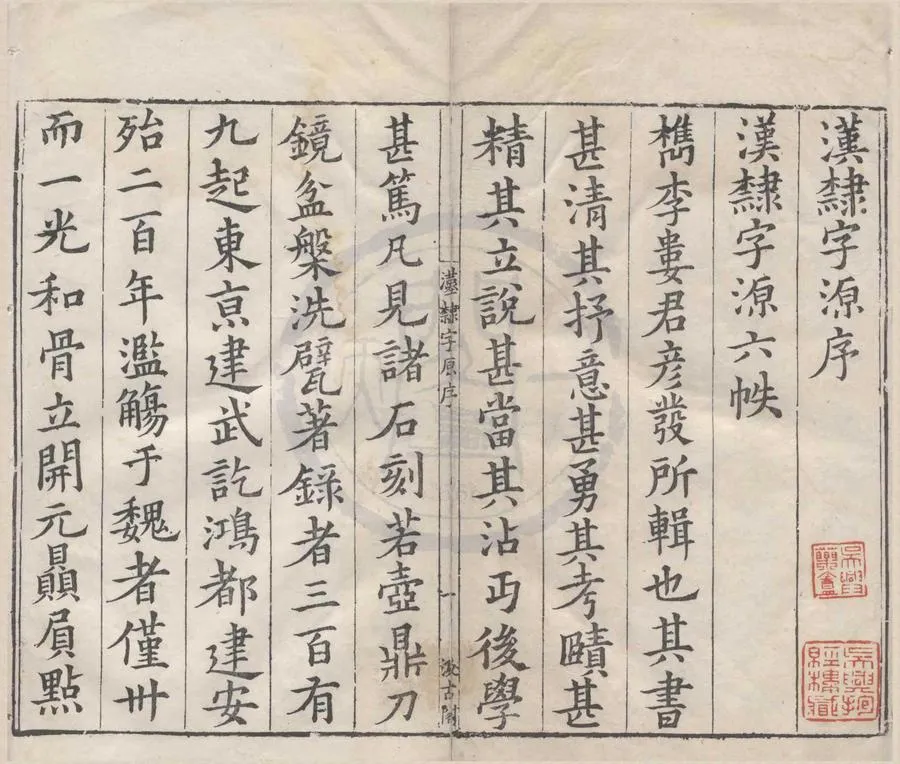 漢隸字源序
漢隸字源六帙
檇李婁君彦發所輯也其書
甚清其抒意甚勇其考賾甚
精其立說甚當其沾丏後學
漢隸字原序
一
汲古閣
甚篤凡見諸石刻若壺鼎刀
鏡盆槃洗甓著錄者三百有
九起東京建武訖鴻都建安
殆二百年濫觴于魏者僅卅
而一光和骨立開元贔屓點